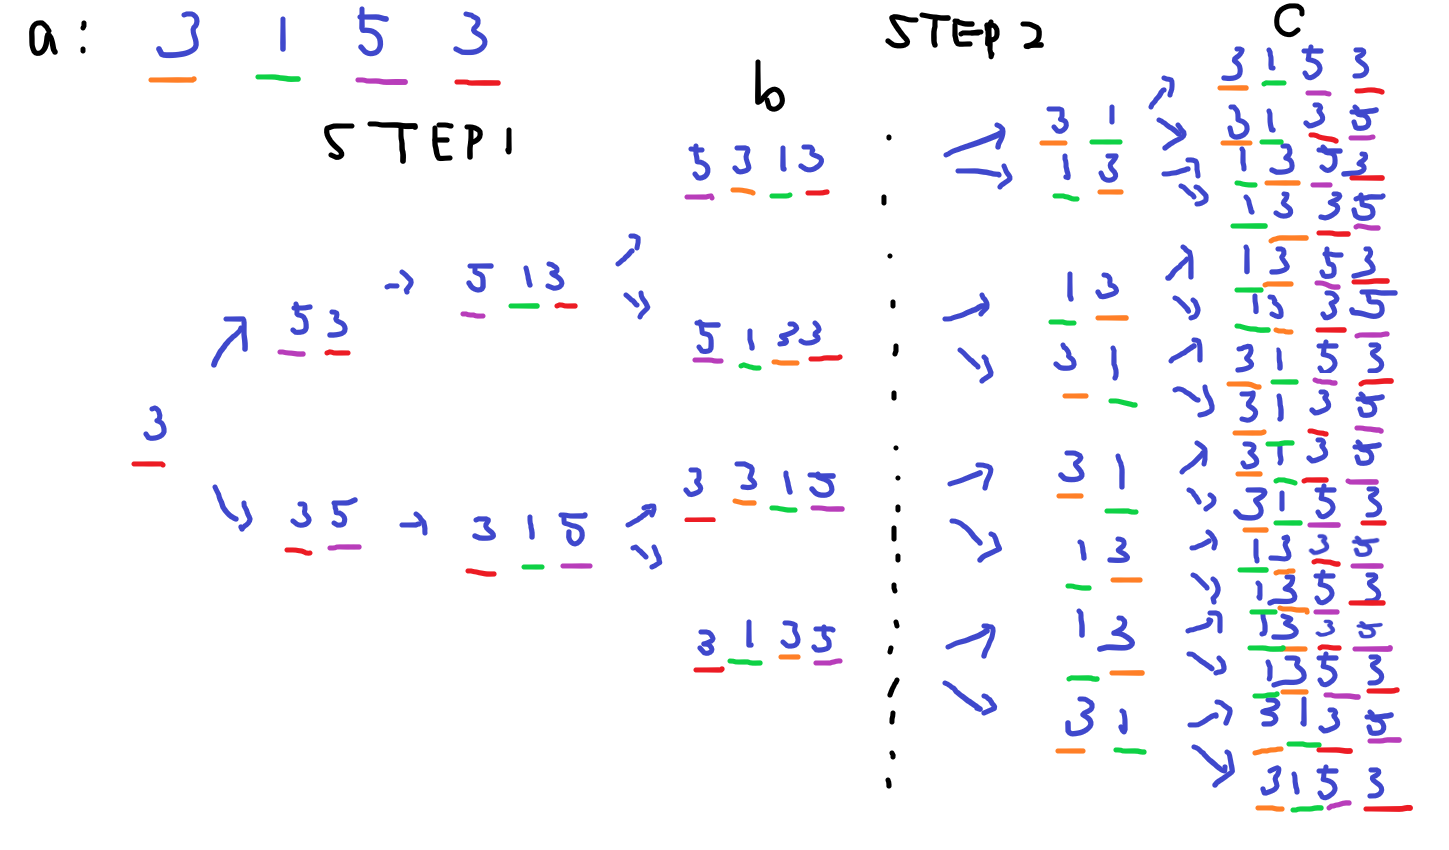 a: 3 1 5 3
STEP 1
b
STEP 2
C
3
5 3
3 5
5 1 3
3 1 5
5 3 1 3
5 1 3 3
3 3 1 5
3 1 3 5
3 1
1 3
1 3
3 1
3 1
1 3
1 3
3 1
3 1 5 3
3 1 3 5
1 3 5 3
1 3 3 5
1 3 5 3
1 3 3 5
3 1 5 3
3 1 3 5
3 1 3 5
3 1 5 3
1 3 3 5
1 3 5 3
1 3 3 5
1 3 5 3
3 1 3 5
3 1 5 3